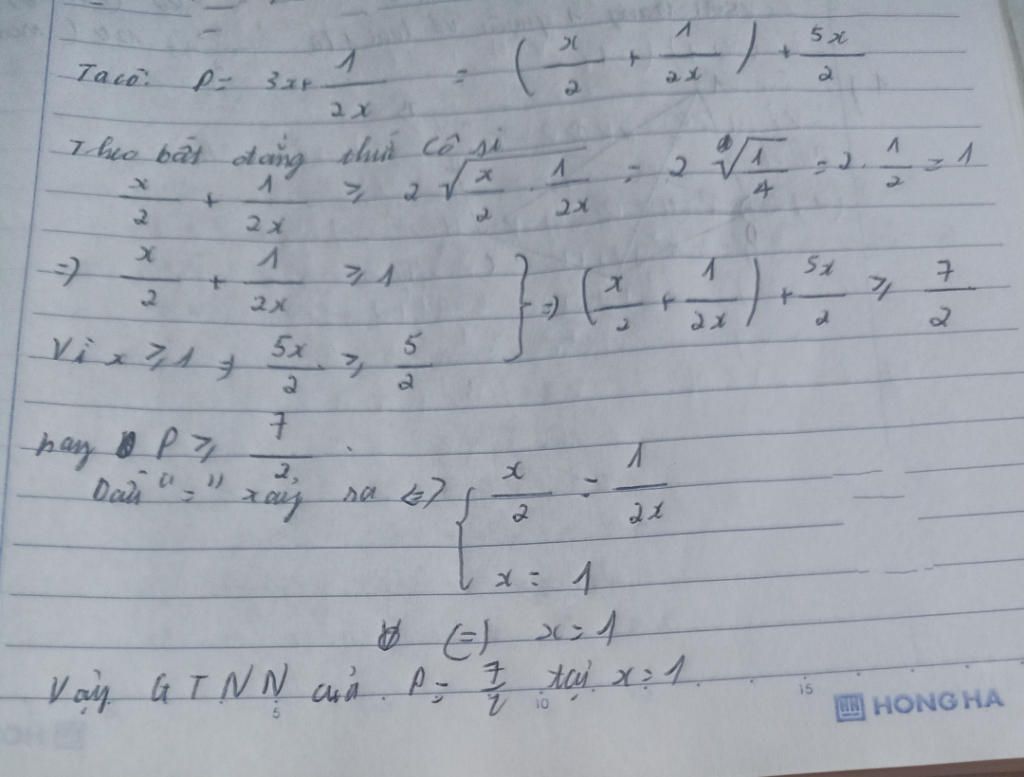 Ta có: P = 3x + 1/2x = (x/2 + 1/2x) + 5x/2
Theo bất đẳng thức Cô si
x/2 + 1/2x ≥ 2√(x/2 . 1/2x) = 2√(1/4) = 2 . 1/2 = 1
=> x/2 + 1/2x ≥ 1
Vì x ≥ 1 => 5x/2 ≥ 5/2 } => (x/2 + 1/2x) + 5x/2 ≥ 7/2
hay P ≥ 7/2.
Dấu "=" xảy ra <=> { x/2 = 1/2x
x = 1
(=) x = 1
Vậy GTNN của P = 7/2 tại x = 1
5 10 15
HONG HA